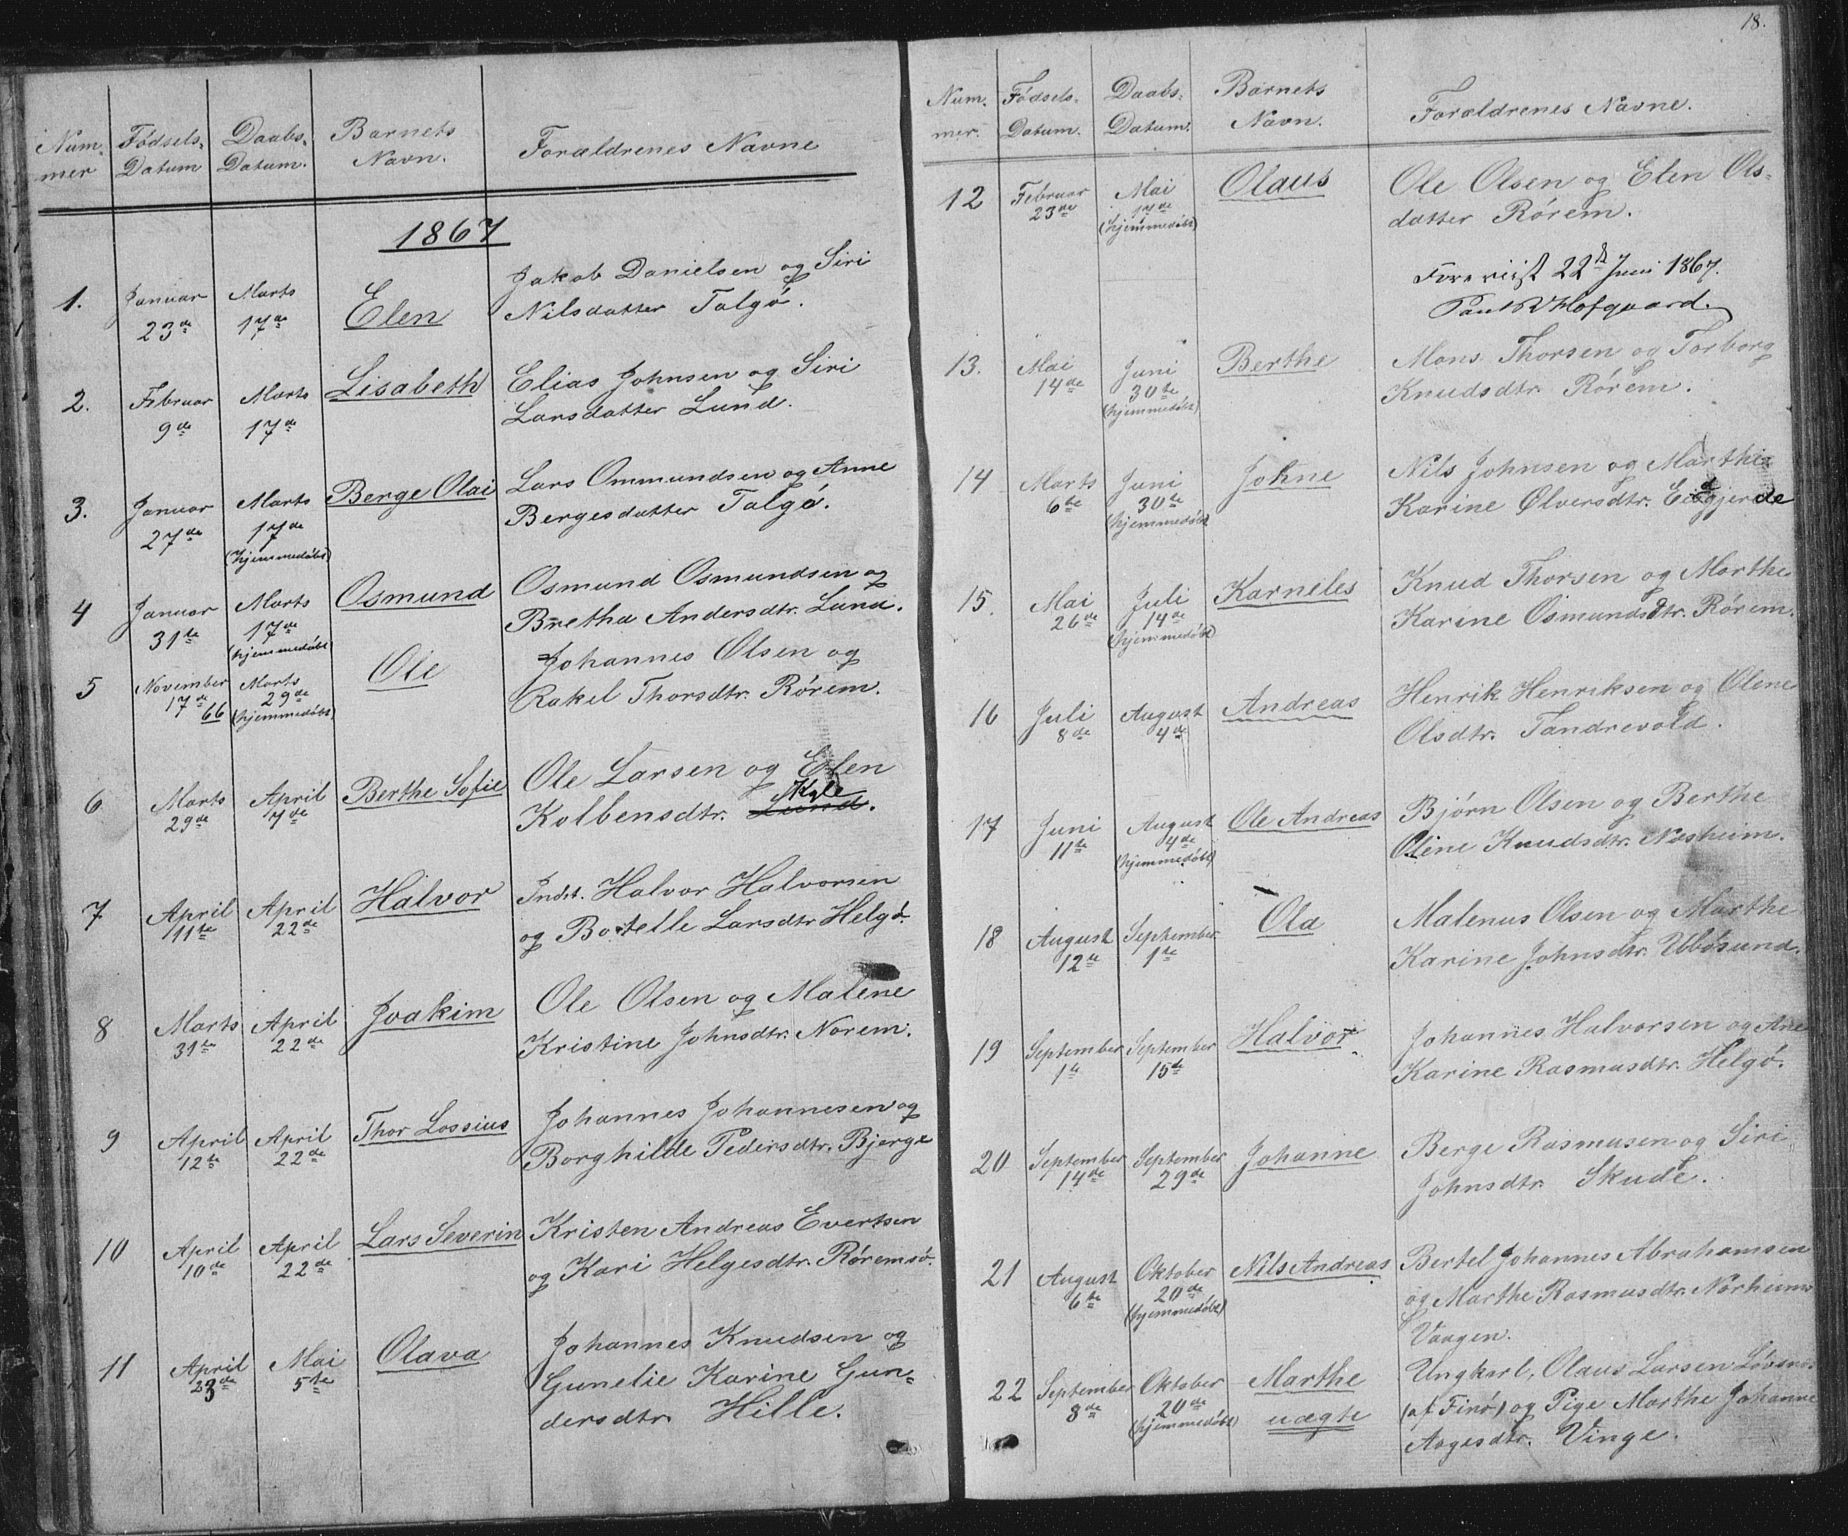 Num- Fødsels- Daabs- Barnets Forældrenes Navne
mer Datum Datum. Navn.
1867
1. Januar Marts Elen Jakob Danielsen og Siri
23de 17de Nilsdatter Talgø.
2. Februar Marts Lisabeth Elias Johnsen og Siri
9de 17de Larsdatter Lund.
3. Januar Marts Berge Olai Lars Ommundsen og Anne
27de 17de Bergesdatter Talgø.
(hjemmedøbt)
4 Januar Marts Osmund Osmund Osmundsen og
31te 17de Bretha Andersdtr. Lund.
(hjemmedøbt)
5 November Marts Ole Johannes Olsen og
17de 66 29de Rakel Thorsdtr. Rørem.
(hjemmedøbt)
6 Marts April Berthe Sofie Ole Larsen og Elen
29de 7de Kolbensdtr. Lund. Kyle
7 April April Halvor Indst. Halvor Halvorsen
11te 22de og Bertelle Larsdtr. Helgø.
8 Marts April Joakim Ole Olsen og Malene
31te 22de Kristine Johnsdtr. Norem.
9 April April Thor Lossius Johannes Johannesen og
12te 22de Borghilde Pedersdtr. Bjerge
10 April April Lars Severin Kristen Andreas Evertsen
10de 22de og Kari Helgesdtr. Røremsø.
11 April Mai Olava Johannes Knudsen og
23de 5te Gunelie Karine Gun-
dersdtr. Hille.
18.
Num- Fødsels- Daabs- Barnets Forældrenes Navne.
mer. Datum. Datum. Navn.
12 Februar Mai Olaus Ole Olsen og Elen Ols-
23de 17de datter Rørem.
(hjemmedøbt)
Forevist 22de Juni 1867.
Paul R Hofgaard.
13. Mai Juni Berthe Mons Thorsen og Torborg
14de 30te Knudsdtr. Rørem.
(hjemmedøbt)
14 Marts Juni Johne Nils Johnsen og Marthe
6te 30te Karine Ølversdtr. Eidgjerde
(hjemmedøbt)
15. Mai Juli Karneles Knud Thorsen og Marthe
26de 14de Karine Osmundsdtr. Rørem.
(hjemmedøbt)
16 Juli August Andreas Henrik Henriksen og Oline
8de 4de Olsdtr. Tandrevold.
17 Juni August Ole Andreas Bjørn Olsen og Berthe
11te 4de Oline Knudsdtr. Næsheim.
(hjemmedøbt)
18 August September Ola Malenus Olsen og Marthe
12te 1te Karine Johnsdtr. Ubøsund.
19 September September Halvor Johannes Halvorsen og Ane
1te 15de Karine Rasmusdtr. Helgø.
20 September September Johanne Berge Rasmusen og Siri
14de 29de Johnsdtr. Skude.
21 August Oktober Nils Andreas Bertel Johannes Abrahamsen
6te 20de og Marthe Rasmusdtr. Nørheims
(hjemmedøbt) Vaagen.
22 September Oktober Marthe Ungkarl, Olaus Larsen Løvsnes
8de 20de uægte (af Finø) og Pige Marthe Johanne
(hjemmedøbt) Aagesdtr. Vinge.